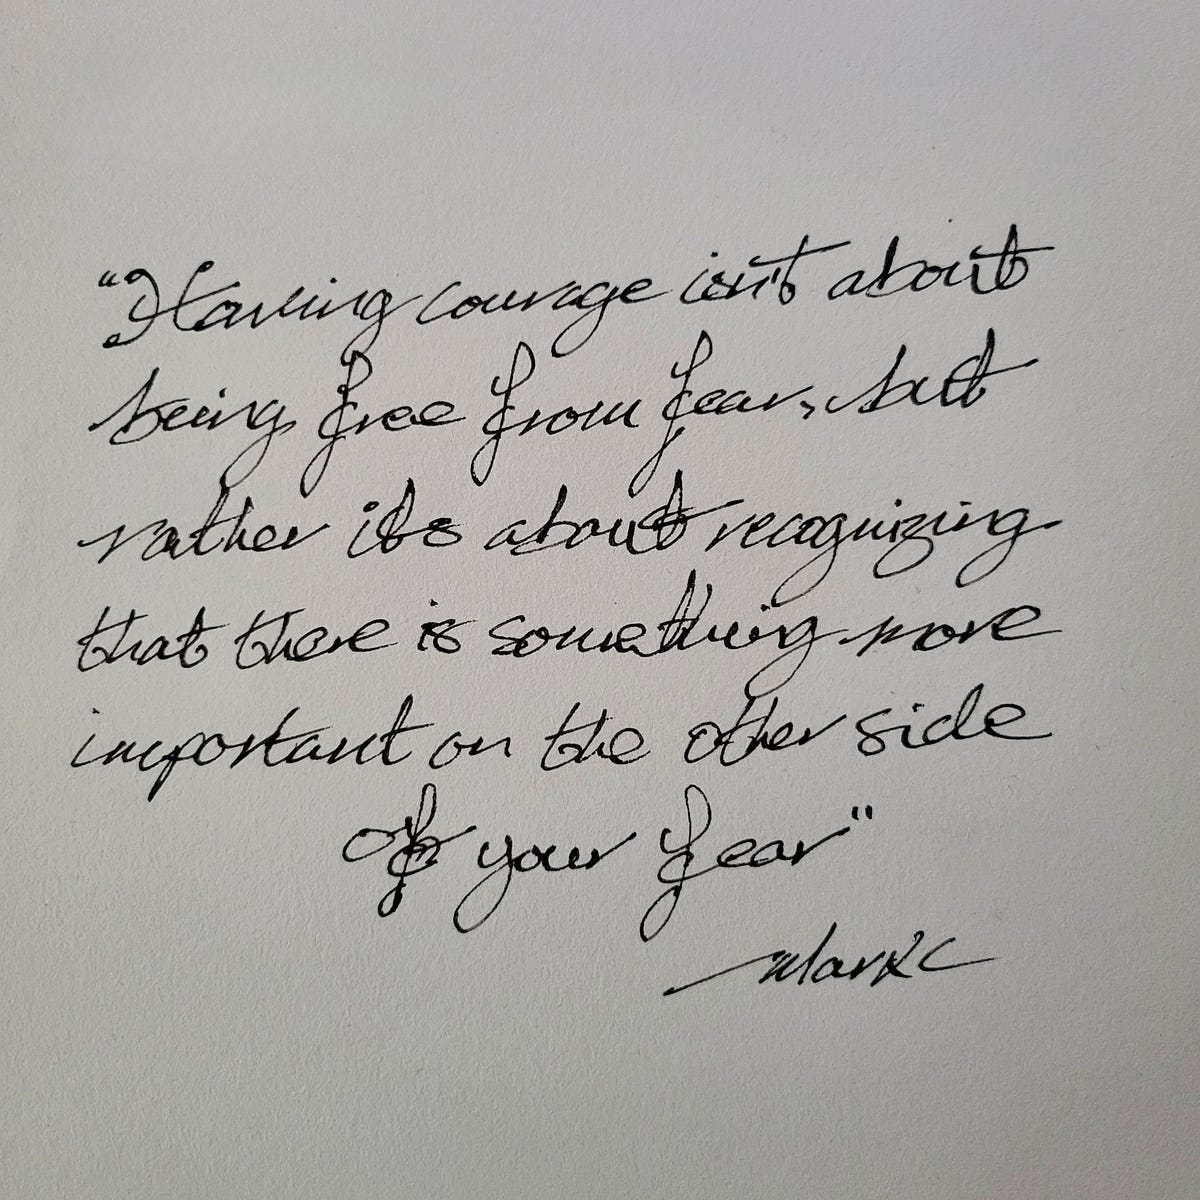 "Having courage isn't about
being free from fear, but
rather its about recognizing
that there is something more
important on the other side
of your fear"
MarkC